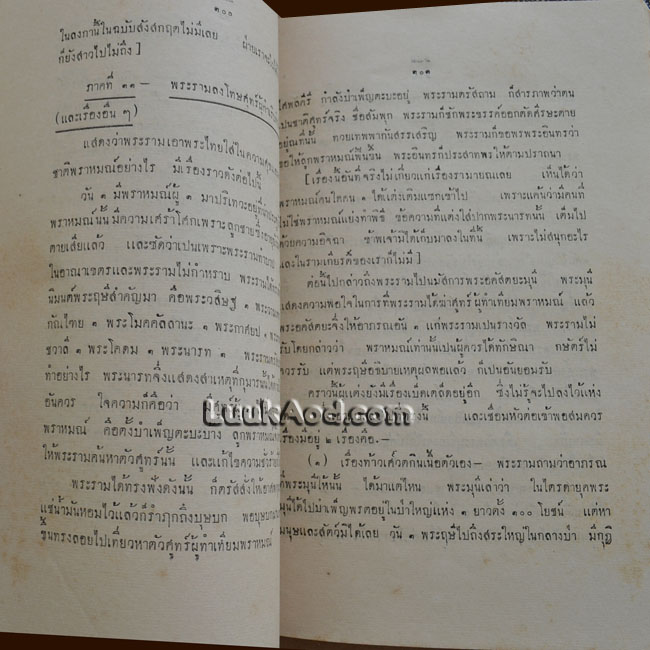 ๑๐๐
ในลงกานี้ในฉบับสังสกฤตไม่มีเลย ฝ่ายเรา
ก็ยังสาวไปไม่ถึง ]
ภาคที่ ๑๑ — พระรามลงโทษศูทร์ผู้
(และเรื่องอื่น ๆ)
แสดงว่าพระรามเอาพระไทยใส่ใน
ชาติพราหมณ์อย่างไร มีเรื่องราวดังต่อไปนี้
วัน ๑ มีพราหมณ์ผู้ ๑ มาปริเทวะอยู่ที่
พราหมณ์นั้นมีความเศร้าโศกเพราะลูกชาย
ตายเสียแล้ว และซัดว่าเปนเพราะพระราม
ในอาณาเขตรและพระรามไม่กำหราบ พระราม
นิมนต์พระฤษีสำคัญมา คือพระวสิษฐ ๑
กัณไทย ๑ พระโมคคัลลานะ ๑ พระกาศยป ๑
ชวาลี ๑ พระโคดม ๑ พระนารท ๑
ทำอย่างไร พระนารทจึ่งแสดงสาเหตุที่กุมารนั้น
อันควร ใจความก็คือว่า
พราหมณ์ คือตั้งบำเพ็ญตะบะบาง ลูกพราหมณ์
ให้พระรามค้นหาตัวศูทร์นั้น และแก้ไขความชั่ว
พระรามได้ทรงฟังดังนั้น ก็ตรัสสั่งให้
แช่น้ำมันหอมไว้แล้วก็รำฦกถึงบุษบก
ขึ้นทรงลอยไปเที่ยวหาตัวศูทร์ผู้ทำเทียมพราหมณ์
๑๐๑
ไศพลคีรี กำลังบำเพ็ญตะบะอยู่ พระรามตรัสถาม ก็สารภาพว่าตน
เปนชาติศูทร์จริง ชื่อสัมพุก พระรามก็ชักพระขรรค์ออกตัดศีรษะตาย
อยู่ณที่นั้น ทวยเทพพากันสรรเสริญ พระรามก็ขอพรพระอินทร์ว่า
ขอให้ลูกพราหมณ์ฟื้นขึ้น พระอินทร์ก็ประสาทพรให้ตามปราถนา
[ เรื่องนี้อันที่จริงไม่เกี่ยวแก่เรื่องรามายณเลย เห็นได้ว่า
พราหมณ์คนใดคน ๑ ได้แต่งเติมแซกเข้าไป เพราะแค้นว่ามีคนที่
ไม่ใช่พราหมณ์แย่งทำพิธี ข้อความที่แต่งใส่ปากพระนารทนั้น เต็มไป
ด้วยความอิจฉา ข้าพเจ้ามิได้เก็บมาลงในที่นี้ เพราะไม่สนุกอะไร
และในรามเกียรติ์ของเราก็ไม่มี ]
ต่อนี้ไปกล่าวถึงพระรามไปนมัสการพระอคัสตยะมุนี พระมุนี
แสดงความพอใจในการที่พระรามได้ฆ่าศูทร์ ผู้ทำเทียมพราหมณ์ แล้ว
พระอคัสตยะจึ่งให้อาภรณอัน ๑ แก่พระรามเปนรางวัล พระรามไม่
รับโดยกล่าวว่า พราหมณ์เท่านั้นเปนผู้ควรได้ทักษิณา กษัตร์ไม่
ควรรับ แต่พระฤษีอธิบายเหตุผลพอแล้ว ก็เปนอันยอมรับ
คราวนี้ผู้แต่งยังมีเรื่องเบ็ดเตล็ดอยู่อีก ซึ่งไม่รู้จะไปลงไว้แห่ง
และเชื่อมหัวต่อเข้าพอสมควร
เรื่องมีอยู่ ๒ เรื่องคือ.—
(๑) เรื่องท้าวเศ๎วตกินเนื้อตัวเอง— พระรามถามว่าอาภรณ
ที่พระมุนีให้นั้น ได้มาแต่ไหน พระมุนีเล่าว่า ในไตรดายุคพระ
มุนีได้ไปบำเพ็ญพรตอยู่ในป่าใหญ่แห่ง ๑ ยาวตั้ง ๑๐๐ โยชน์ แต่หา
มนุษและสัตว์มิได้เลย วัน ๑ พระฤษีไปถึงสระใหญ่ในกลางป่า มีกุฏิ
LuukAod.com